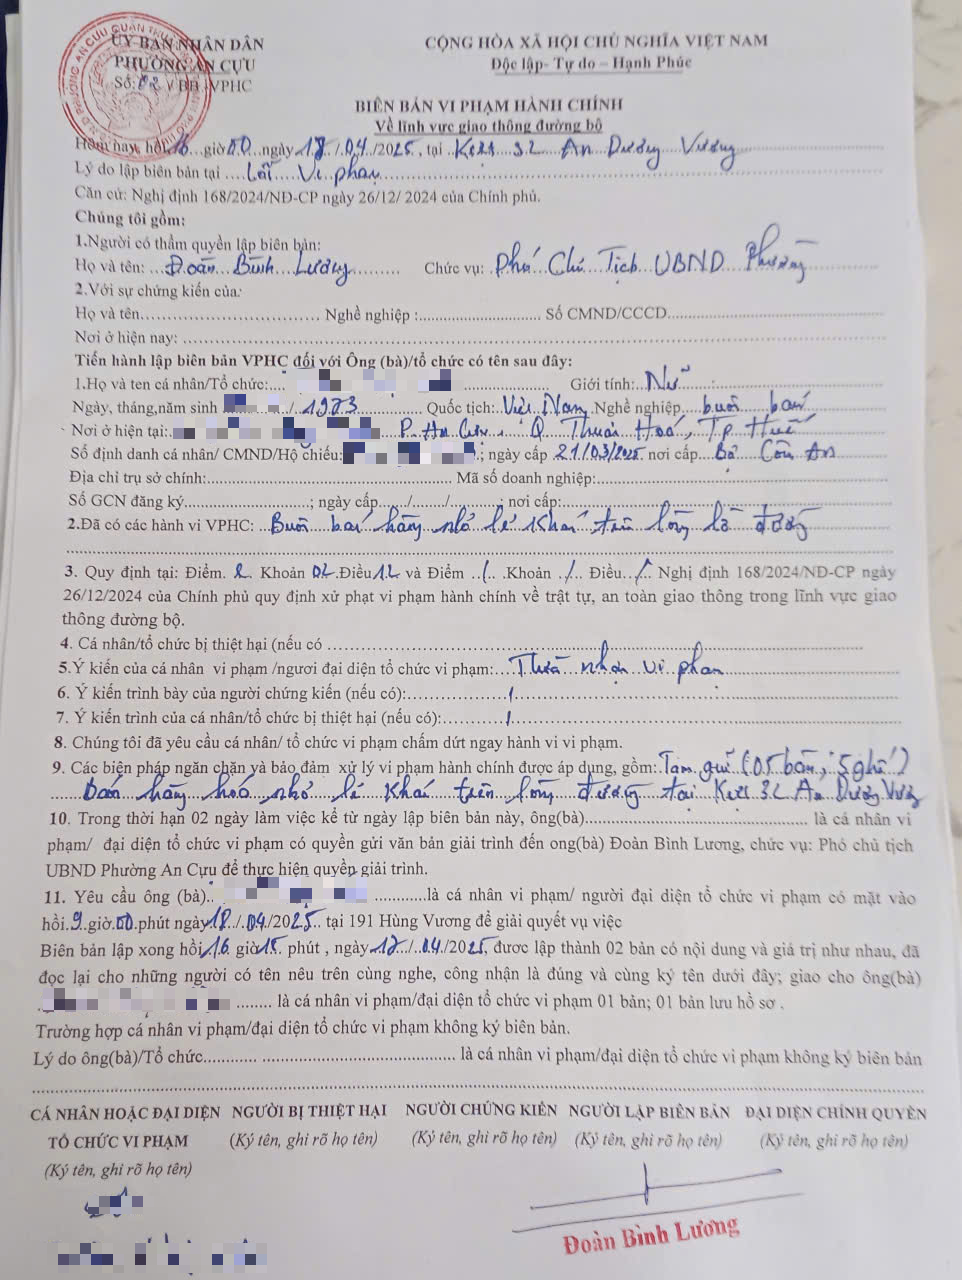 ỦY BAN NHÂN DÂN
PHƯỜNG AN CỰU
Số: / BB -VPHC
CỘNG HÒA XÃ HỘI CHỦ NGHĨA VIỆT NAM
Độc lập- Tự do – Hạnh Phúc
BIÊN BẢN VI PHẠM HÀNH CHÍNH
Về lĩnh vực giao thông đường bộ
Hôm nay, hồi 16 giờ 00 ngày 17/04/2025, tại Kiệt 32 An Dương Vương
Lý do lập biên bản tại Lỗi Vi phạm
Căn cứ: Nghị định 168/2024/NĐ-CP ngày 26/12/ 2024 của Chính phủ.
Chúng tôi gồm:
1.Người có thẩm quyền lập biên bản:
Họ và tên: Đoàn Bình Lương Chức vụ: Phó Chủ Tịch UBND Phường
2.Với sự chứng kiến của:
Họ và tên Nghề nghiệp : Số CMND/CCCD
Nơi ở hiện nay:
Tiến hành lập biên bản VPHC đối với Ông (bà)/tổ chức có tên sau đây:
1.Họ và ten cá nhân/Tổ chức: Giới tính: Nữ
Ngày, tháng,năm sinh / 1973 Quốc tịch: Việt Nam Nghề nghiệp buôn bán
Nơi ở hiện tại: P. An Cựu, Q Thuận Hoá, Tp Huế
Số định danh cá nhân/ CMND/Hộ chiếu: ; ngày cấp 21/03/2025 nơi cấp Bộ Công An
Địa chỉ trụ sở chính: Mã số doanh nghiệp:
Số GCN đăng ký ; ngày cấp / / ; nơi cấp:
2.Đã có các hành vi VPHC: Buôn bán hàng nhỏ lẻ khác trên lòng lề đường
3. Quy định tại: Điểm Khoản 02 Điều 12 và Điểm / Khoản / Điều / Nghị định 168/2024/NĐ-CP ngày
26/12/2024 của Chính phủ quy định xử phạt vi phạm hành chính về trật tự, an toàn giao thông trong lĩnh vực giao
thông đường bộ.
4. Cá nhân/tổ chức bị thiệt hại (nếu có
5.Ý kiến của cá nhân vi phạm /ngươi đại diện tổ chức vi phạm: Thừa nhận vi phạm
6. Ý kiến trình bày của người chứng kiến (nếu có): /
7. Ý kiến trình của cá nhân/tổ chức bị thiệt hại (nếu có): /
8. Chúng tôi đã yêu cầu cá nhân/ tổ chức vi phạm chấm dứt ngay hành vi vi phạm.
9. Các biện pháp ngăn chặn và bảo đảm xử lý vi phạm hành chính được áp dụng, gồm: Tạm giữ (05 bàn, 5 ghế)
Bán hàng hoá nhỏ lẻ khác trên lòng đường tại Kiệt 32 An Dương Vương
10. Trong thời hạn 02 ngày làm việc kể từ ngày lập biên bản này, ông(bà) là cá nhân vi
phạm/ đại diện tổ chức vi phạm có quyền gửi văn bản giải trình đến ong(bà) Đoàn Bình Lương, chức vụ: Phó chủ tịch
UBND Phường An Cựu để thực hiện quyền giải trình.
11. Yêu cầu ông (bà) là cá nhân vi phạm/ người đại diện tổ chức vi phạm có mặt vào
hồi 9 giờ 00 phút ngày 18/04/2025 tại 191 Hùng Vương để giải quyết vụ việc
Biên bản lập xong hồi 16 giờ 15 phút , ngày 17/04/2025, được lập thành 02 bản có nội dung và giá trị như nhau, đã
đọc lại cho những người có tên nêu trên cùng nghe, công nhận là đúng và cùng ký tên dưới đây; giao cho ông(bà)
là cá nhân vi phạm/đại diện tổ chức vi phạm 01 bản; 01 bản lưu hồ sơ .
Trường hợp cá nhân vi phạm/đại diện tổ chức vi phạm không ký biên bản.
Lý do ông(bà)/Tổ chức là cá nhân vi phạm/đại diện tổ chức vi phạm không ký biên bản
CÁ NHÂN HOẶC ĐẠI DIỆN NGƯỜI BỊ THIỆT HẠI NGƯỜI CHỨNG KIẾN NGƯỜI LẬP BIÊN BẢN ĐẠI DIỆN CHÍNH QUYỀN
TỔ CHỨC VI PHẠM (Ký tên, ghi rõ họ tên) (Ký tên, ghi rõ họ tên) (Ký tên, ghi rõ họ tên) (Ký tên, ghi rõ họ tên)
(Ký tên, ghi rõ họ tên)
Đoàn Bình Lương